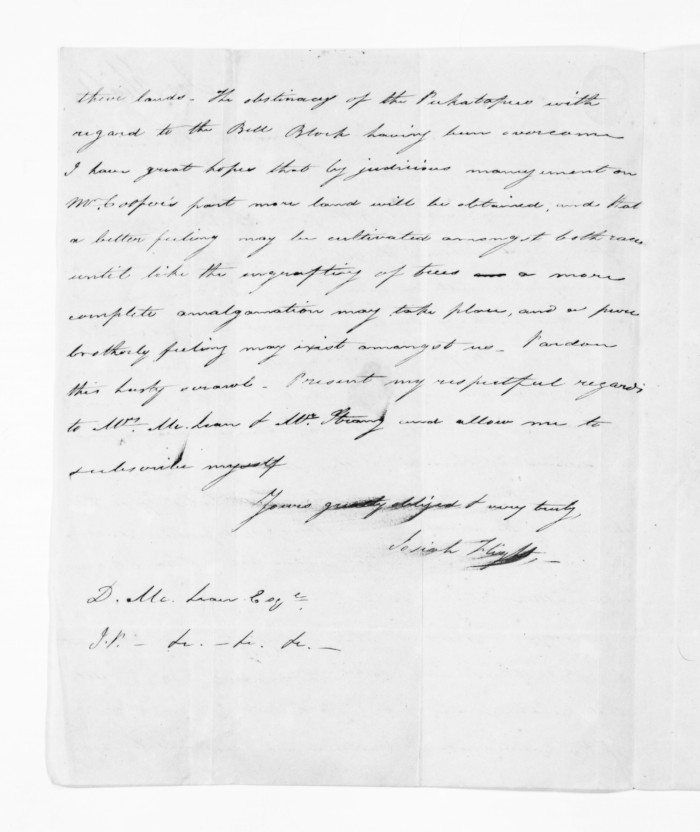 their lands - The obstinacy of the Pukatapus with
regard to the Bell Block having been overcome
I have great hopes that by judicious management on
Mr Cooper's part more land will be obtained, and that
a better feeling may be cultivated amongst both races
until like the engrafting of trees a more
complete amalgamation may take place, and a pure
brotherly feeling may exist amongst us - Pardon
this hasty scrawl - Present my respectful regards
to Mrs. Mc. Lean & Mrs Strang and allow me to
subscribe myself
Yours greatly obliged & very truly
Josiah Flight -
D. Mc. Lean Esqe.
J.P. - &c. - &c. &c. -